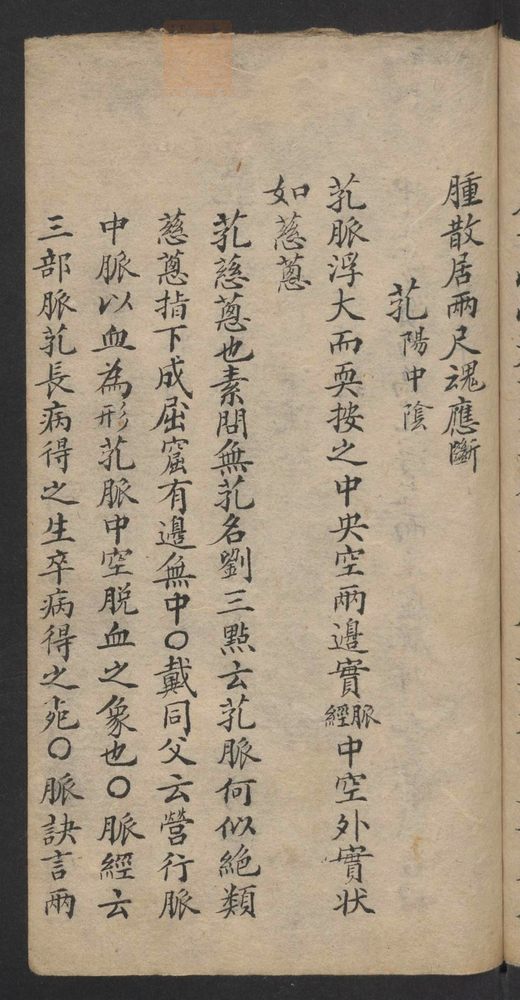 腫散居兩尺魂應斷
芤陽中陰
芤脈浮大而耎按之中央空兩邊實脈經中空外實狀
如慈蔥
芤慈蔥也素問無芤名劉三點云芤脈何似絶類
慈蔥指下成屈窟有邊無中○戴同父云營行脈
中脈以血為形芤脈中空脱血之象也○脈經云
三部脈芤長病得之生卒病得之死○脈訣言兩